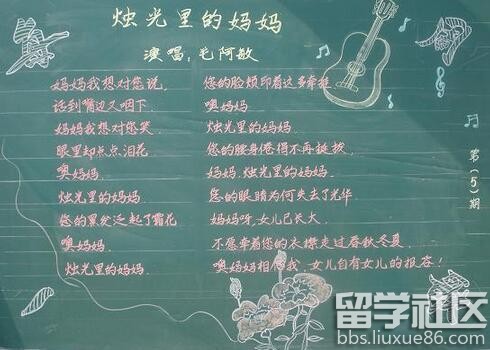 烛光里的妈妈
演唱:毛阿敏
妈妈我想对您说.
话到嘴边又咽下.
妈妈我想对您笑.
眼里却点点泪花.
噢妈妈.
烛光里的妈妈.
您的黑发泛起了霜花
噢妈妈
烛光里的妈妈.
您的脸颊印着这多牵挂
噢妈妈.
烛光里的妈妈.
您的腰身倦得不再挺拔.
妈妈.烛光里的妈妈.
您的眼睛为何失去了光华
妈妈呀,女儿已长大.
不愿牵着您的衣襟走过春秋冬夏.
噢妈妈相信我.女儿自有女儿的报答!
第(5)期
留学社区
bbs.liuxue86.com